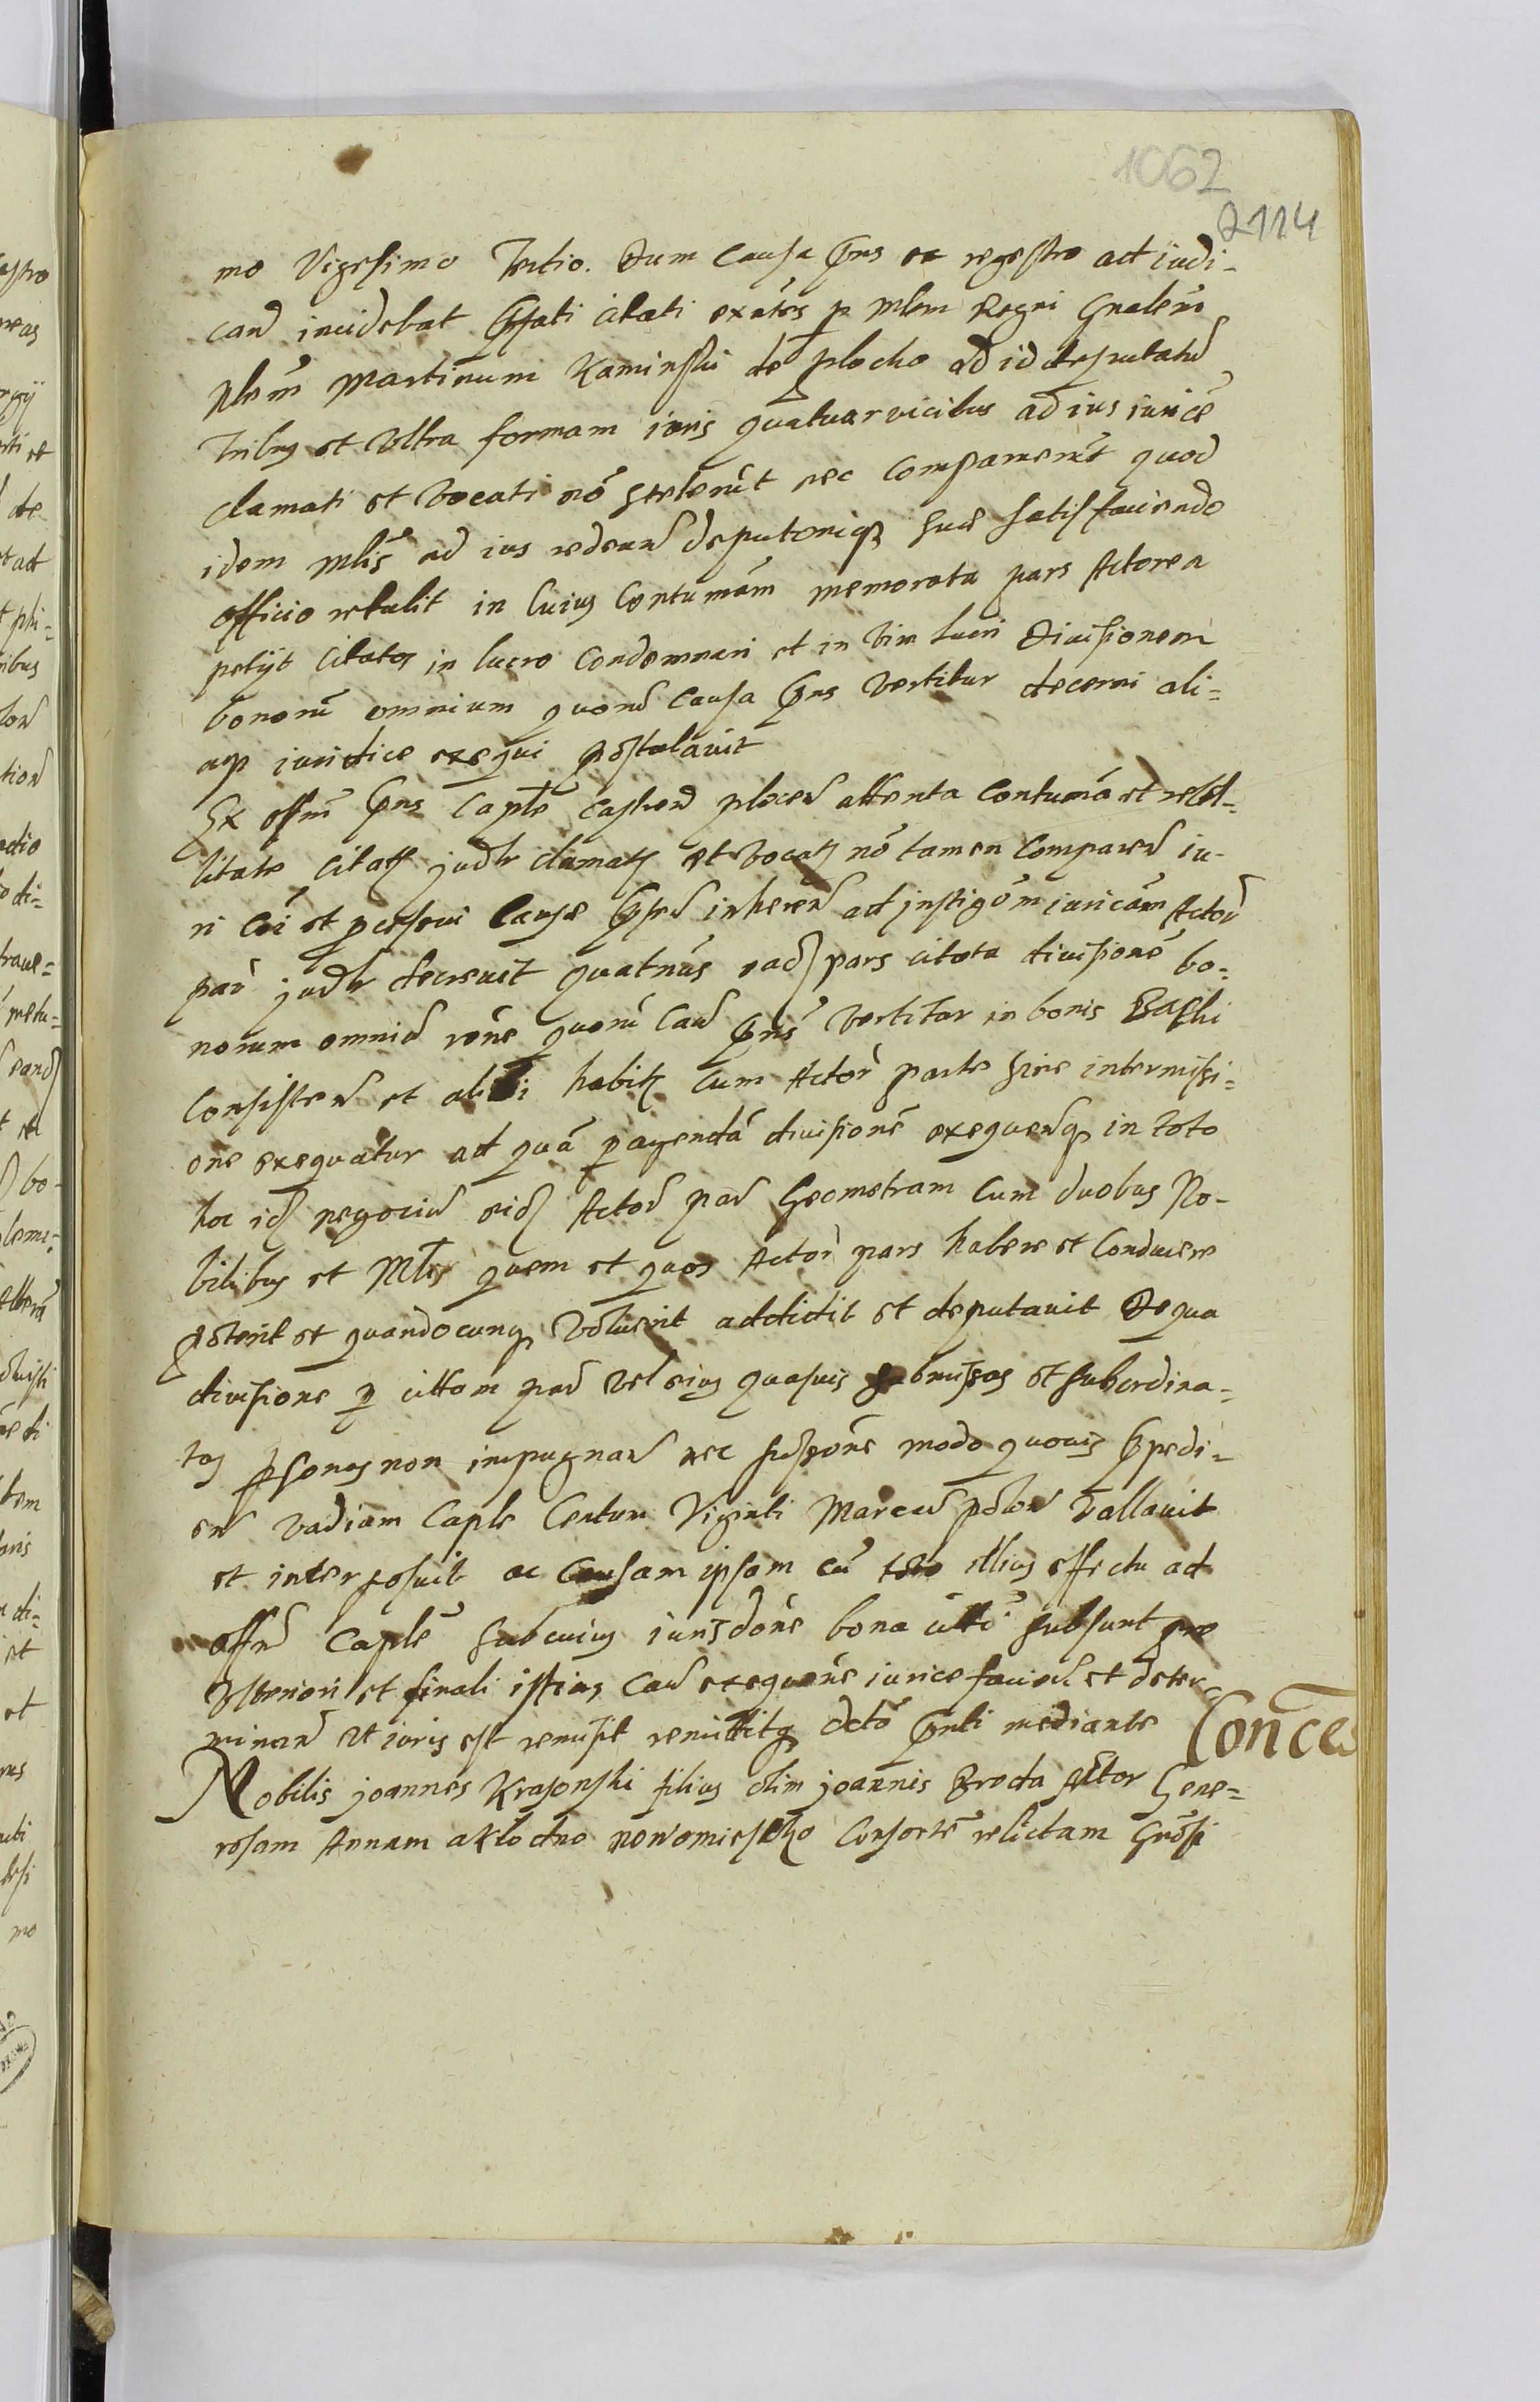 1062
2114
mo Vigesimo Tertio. Dum Causa pns ex regestro ad iudi-
cand incidebat pfati citati exntes p Mlem Regni Gnalem
Nlem Martinum Kaminski de Plocko ad id deputatu
tribus et Vltra formam iuris quatuor vicibus ad ius iurice
clamati et vocati no steterut nec Comparuerut quod
idem Mlis ad ius rediens deputonique sue satisfaciendo
officio retulit in Cuius Contumam memorata pars Actorea
petijt Citatos in lucro Condemnari et in Vim lucri Diuisionem
bonoru omnium quoru Causa pns Vertitur decerni ali-
aque iuridice exequi postulauit
Et offm pns Caple Castren plocen attenta Contuma et rebel-
litate Citat judr clamat et vocat no tamen Comparen iu-
ri Coi et processui Cause pnti inheren ad instigom iuricam Actor
par judr decreuit quatnus ead pars citata diuisione bo-
norum omniu rone quoru Cau pns Vertitur in bonis
Consisten et alibi habit Cum Actor parte sine intermissi-
one exequatur ad qua pagenda diuisione exequendque in toto
hoc id negociu eid Actor par Geometram Cum duobus No-
bilibus et Mlis quem et quos Actor pars habere et Conducere
poterit et quandocunque Voluerit addidit et deputauit De qua
diuisione p cittam par Vel eius quasuis submissas et subordina-
tas psonas non impugnan nec suspone modo quouis Impedi-
en vadium Caple Centum Viginti Marcar polon vallauit
et interposuit ac Causam ipsam cu toto illius effectu ad
offm Caple sub cuius iurisdone bona citto subsunt pro
Vlteriori et finali istius Cau exequone iurice facien et deter-
minan Vt iuris est remisit remittitque dcto pnti mediante
Conce
Nobilis joannes Krasonski filius olim joannis Broda Actor Gene-
rosam Annam a Klodno Consorte relictam Grosi